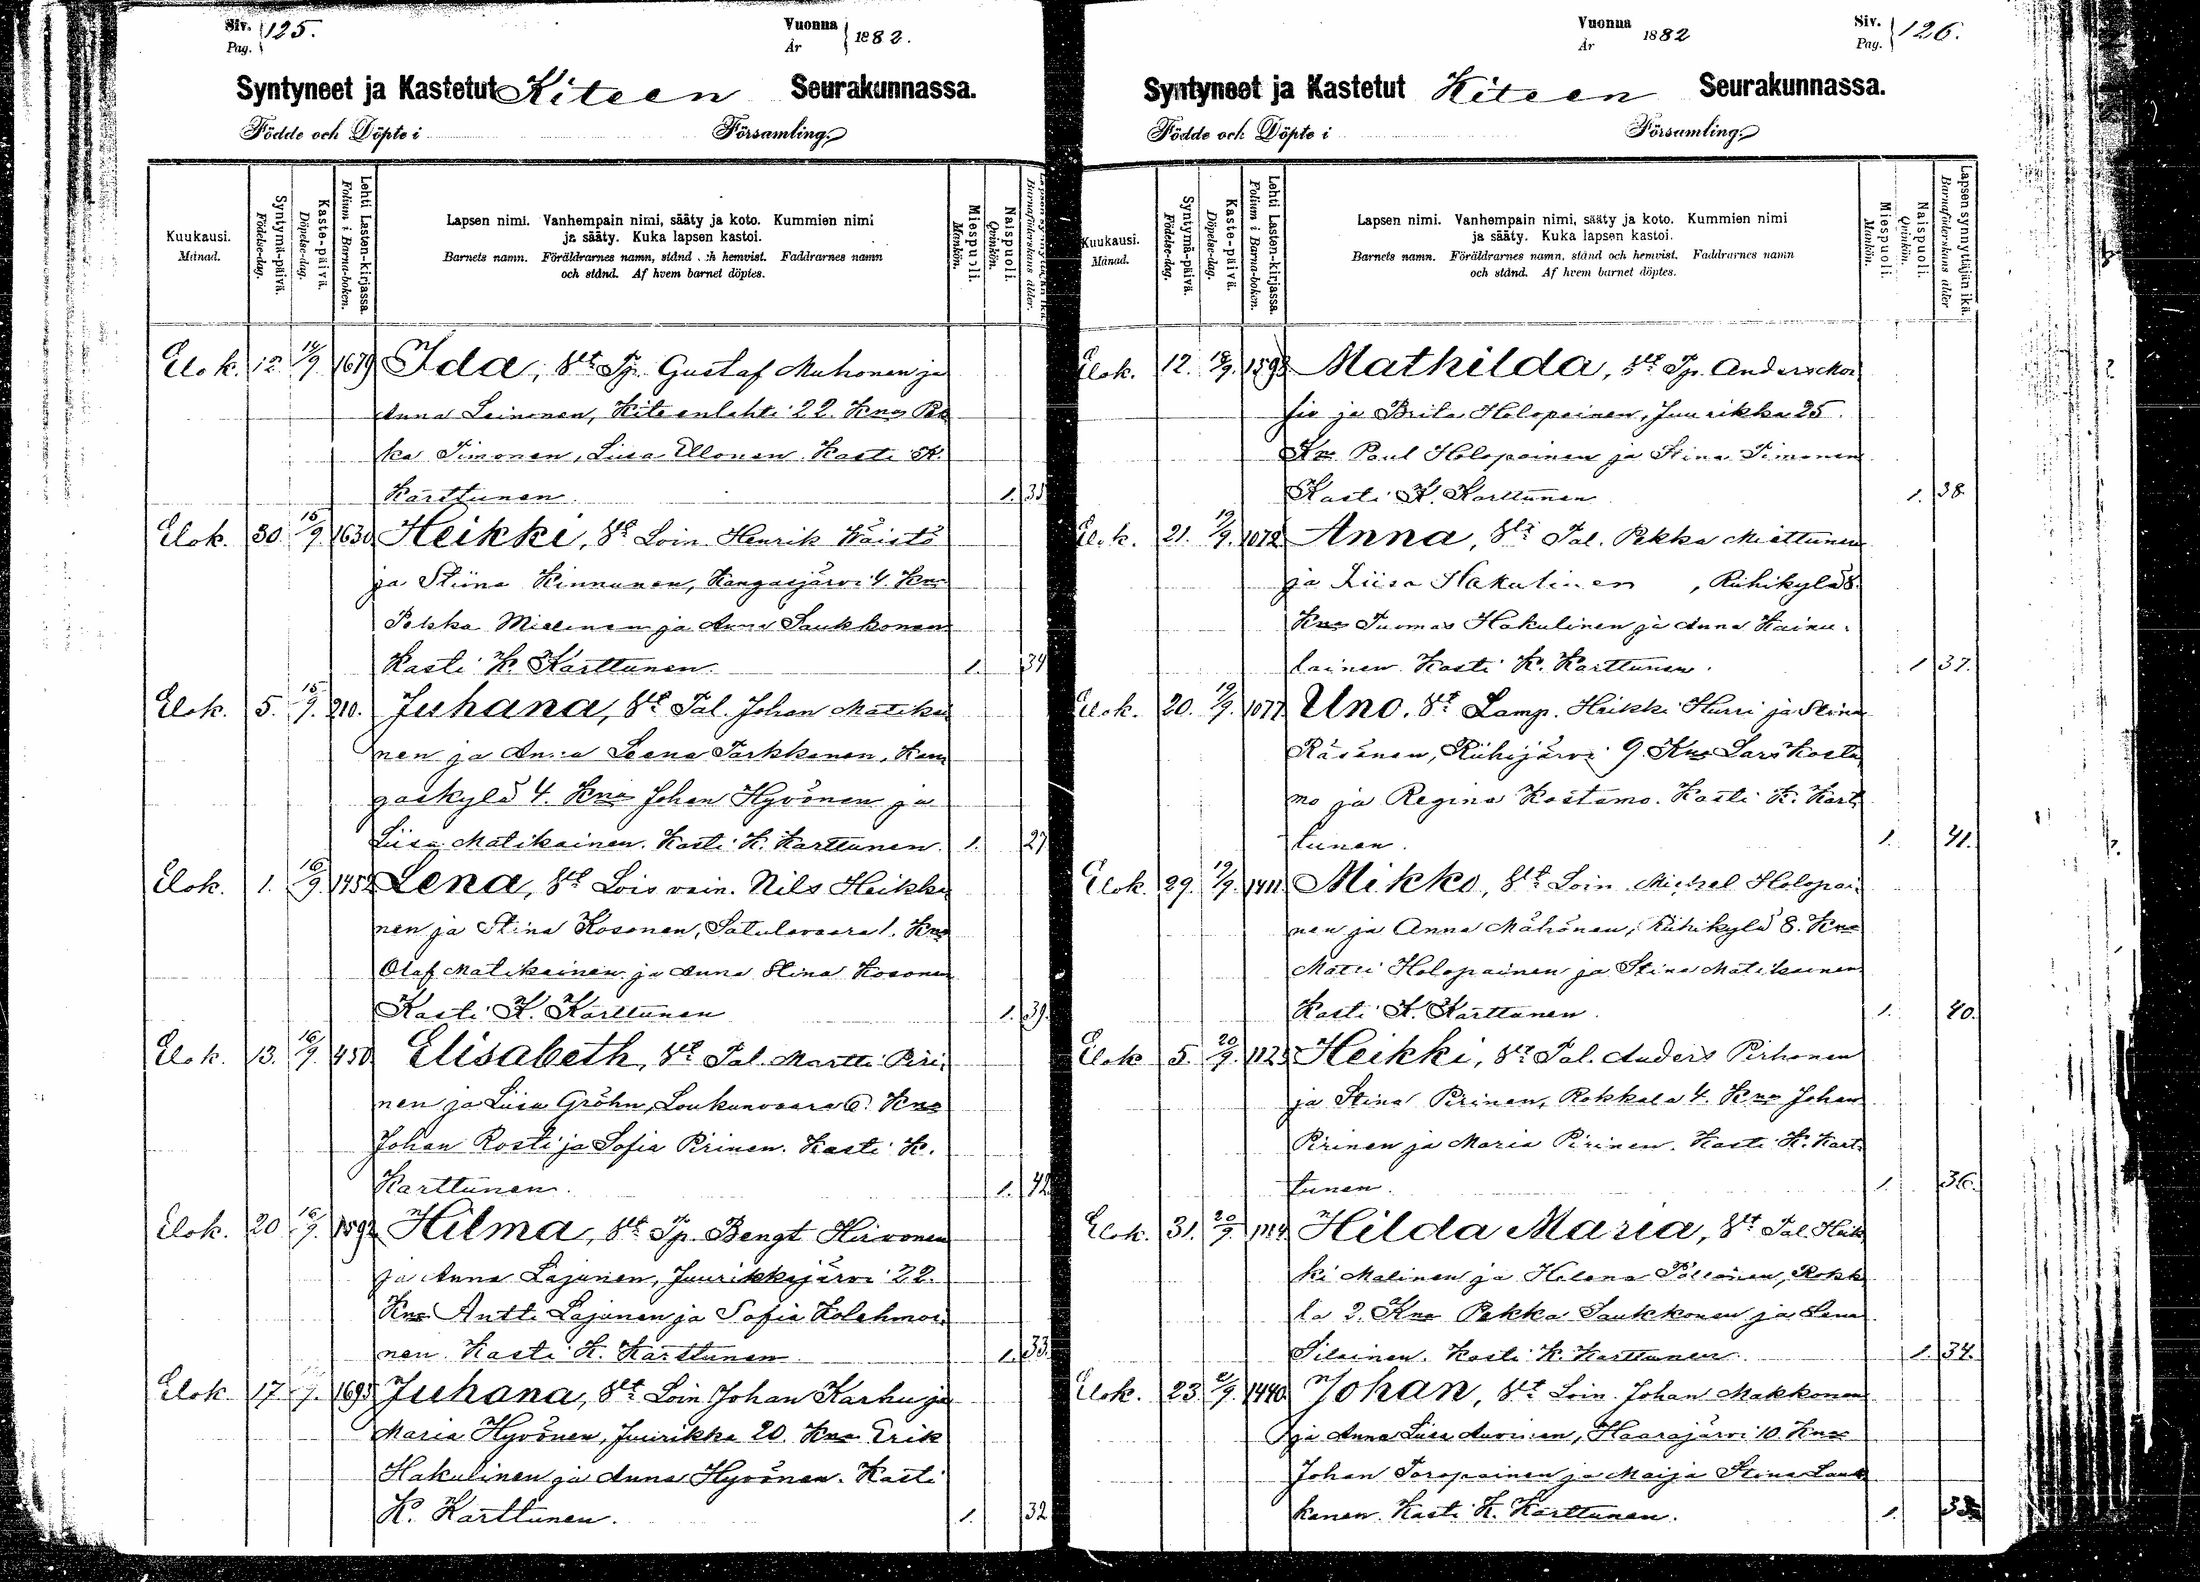 Siv. 125.
Pag.
Vuonna 1882.
År
Syntyneet ja Kastetut Kiteen Seurakunnassa.
Födde och Döpte i Församling.
Kuukausi. Månad.
Syntymä-päivä. Födelse-dag.
Kaste-päivä. Döpelse-dag.
Lehti Lasten-kirjassa. Folium i Barna-boken.
Lapsen nimi. Vanhempain nimi, sääty ja koto. Kummien nimi
ja sääty. Kuka lapsen kastoi.
Barnets namn. Föräldrarnes namn, stånd och hemvist. Faddrarnes namn
och stånd. Af hvem barnet döptes.
Miespuoli. Mankön.
Naispuoli. Qvinkön.
Barnaföderskans ålder.
Elok. 12. 14/9 1679 Ida, Slt Tp. Gustaf Muhonen ja
Anna Leinonen, Kiteenlahti 22. Kno Pek
ka Timonen, Liisa Ellonen. Kasti K.
Karttunen. 1. 35
Elok. 30. 15/9. 1630 Heikki, Slt Loin Henrik Väistö
ja Stiina Kinnunen, Kangasjärvi 4. Kno
Pekka Mielonen ja Anna Saukkonen
Kasti K. Karttunen. 1. 34
Elok. 5. 15/9. 210. Juhana, Slt Tal. Johan Matikai
nen ja Anna Leena Parkkonen, Kan
gaskylä 4. Kno Johan Hyvönen ja
Liisa Matikainen. Kasti K. Karttunen. 1. 27
Elok. 1. 16/9. 1452 Lena, Slt Lois vain. Nils Heikki
nen ja Stina Kosonen, Satulavaara 1. Kno
Olaf Matikainen ja Anna Stina Kosonen
Kasti K. Karttunen 1. 39.
Elok. 13. 16/9. 450 Elisabeth, Slt Tal. Martti Piri
nen ja Liisa Gröhn, Loukunvaara 6. Kno
Johan Rosti ja Sofia Pirinen. Kasti K.
Karttunen. 1. 42
Elok. 20 16/9. 1592 Hilma, Slt Tp. Bengt Hirvonen
ja Anna Lajunen, Juurikkajärvi 22.
Kno Antti Lajunen ja Sofia Kolehmai
nen. Kasti K. Karttunen 1. 33.
Elok. 17 /9. 1695 Juhana, Slt Loin Johan Karhu ja
Maria Hyvönen, Juurikka 20. Kno Erik
Hakulinen ja Anna Hyvönen. Kasti
K. Karttunen. 1. 32
Vuonna 1882
År
Siv. 126.
Pag.
Syntyneet ja Kastetut Kiteen Seurakunnassa.
Födde och Döpte i Församling.
Kuukausi. Månad.
Syntymä-päivä. Födelse-dag.
Kaste-päivä. Döpelse-dag.
Lehti Lasten-kirjassa. Folium i Barna-boken.
Lapsen nimi. Vanhempain nimi, sääty ja koto. Kummien nimi
ja sääty. Kuka lapsen kastoi.
Barnets namn. Föräldrarnes namn, stånd och hemvist. Faddrarnes namn
och stånd. Af hvem barnet döptes.
Miespuoli. Mankön.
Naispuoli. Qvinkön.
Lapsen synnyttäjän ikä. Barnaföderskans ålder.
Elok. 12. 18/9. 1593 Mathilda, Slt Tp. Anders
ja Brita Holopainen, Juurikka 25.
Kno Paul Holopainen ja Stina Timonen
Kasti K. Karttunen 1. 38.
Elok. 21. 19/9. 1072 Anna, Slt Tal. Pekka Miettunen
ja Liisa Hakulinen, Riihikylä 8.
Kno Tuomas Hakulinen ja Anna Kainu
lainen. Kasti K. Karttunen. 1 37.
Elok. 20. 19/9. 1077 Uno. Slt Lamp. Heikki Hurri ja Stina
Räsänen, Riihijärvi 9. Kno Lars Kosta
mo ja Regina Kostamo. Kasti K. Kart
tunen. 1. 41.
Elok. 29. 19/9. 1411 Mikko, Slt Loin. Michel Holopai
nen ja Anna Mähönen, Riihikylä 8. Kno
Matti Holopainen ja Stina Matikainen
Kasti K. Karttunen. 1. 40.
Elok 5. 20/9. 1123 Heikki, Slt Tal. Anders Pirhonen
ja Stina Pirinen, Rokkala 4. Kno Johan
Pirinen ja Maria Pirinen. Kasti K. Kart
tunen. 1. 36.
Elok. 31. 20/9. Hilda Maria, Slt Tal. Heik
ki Malinen ja Helena Pöllönen, Rokka
la 2. Kno Pekka Saukkonen ja Lena
Silainen. Kasti K. Karttunen. 1. 34.
Elok. 23. 21/9. 1440. Johan, Slt Loin. Johan Makkonen
ja Anna Liisa Auvinen, Haarajärvi 10. Kno
Johan Toropainen ja Maija Stina Lauk
kanen. Kasti K. Karttunen. 1.